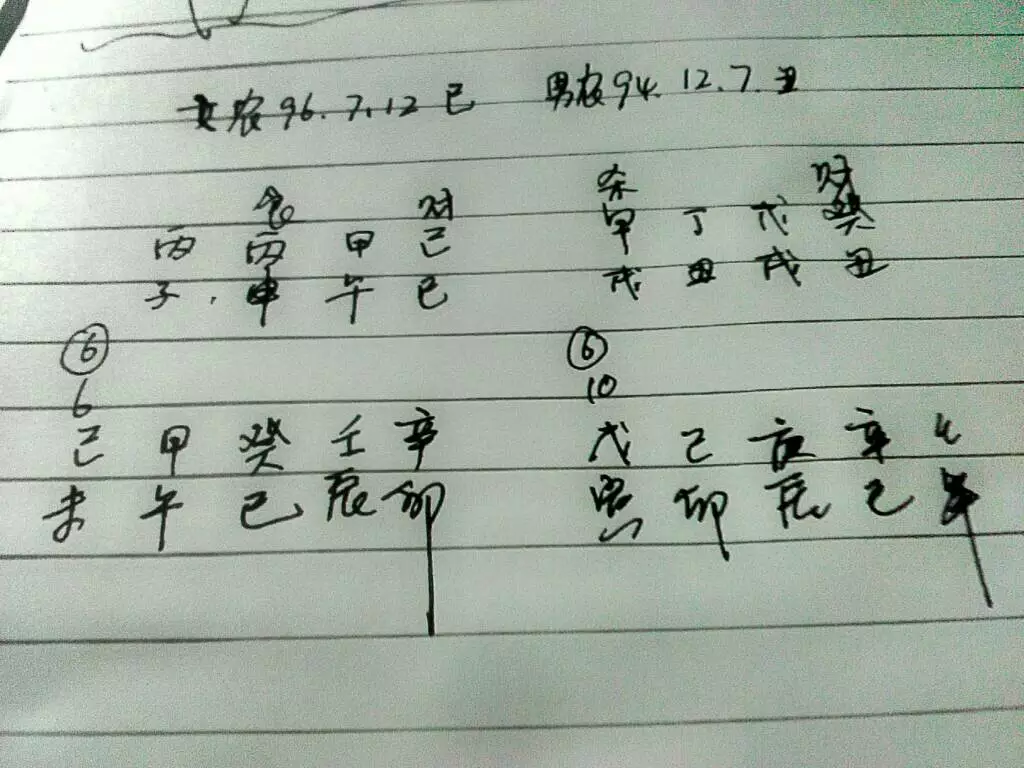 女农96.7.12巳 男农94.12.7.丑
食 财 杀 财
丙 丙 甲 己 甲 丁 戊 癸
子.申 午 巳 戌 丑 戌 丑
⑥ ⑥
6 10
己 甲 癸 壬 辛 戊 己 辛
未 午 巳 辰 卯 寅 卯 辰 巳